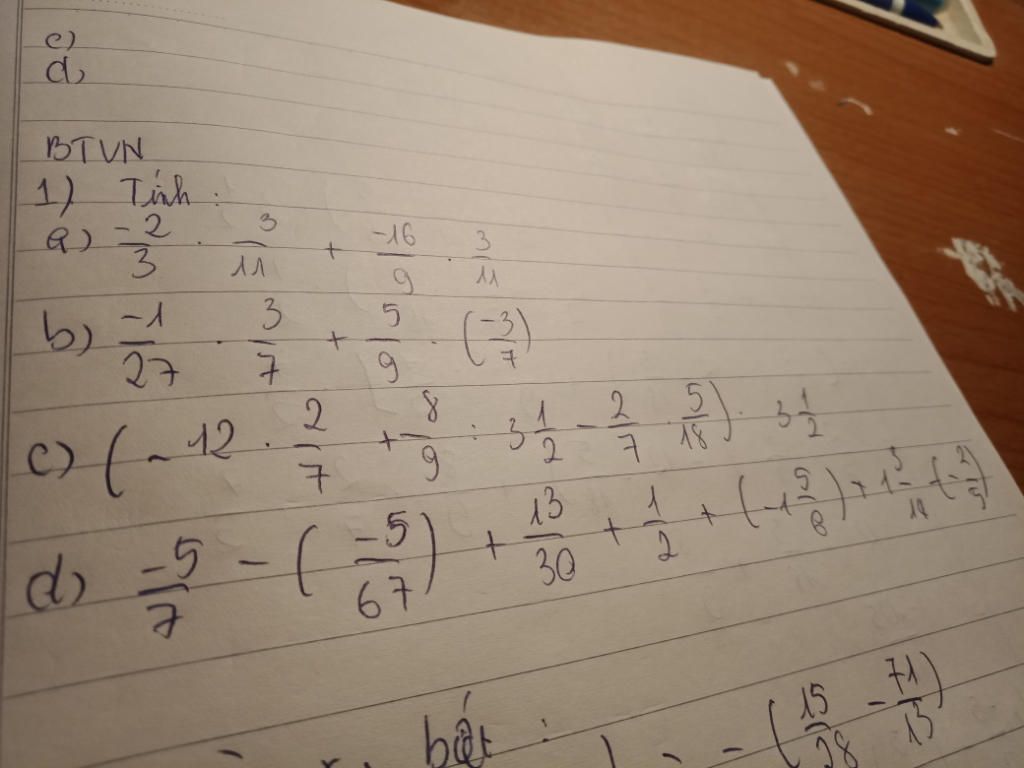 c)
d,
BTVN
1) Tính :
a) -2/3 · 3/11 + -16/9 · 3/11
b) -1/27 · 3/7 + 5/9 · (-3/7)
c) (-12 · 2/7 + -8/9 : 3 1/2 - 2/7 · 5/18) · 3 1/2
d) -5/7 - (-5/67) + 13/30 + 1/2 + (-1 5/6) + 1 3/14 - (-2/5)
bột : - (15/28 - 71/13)